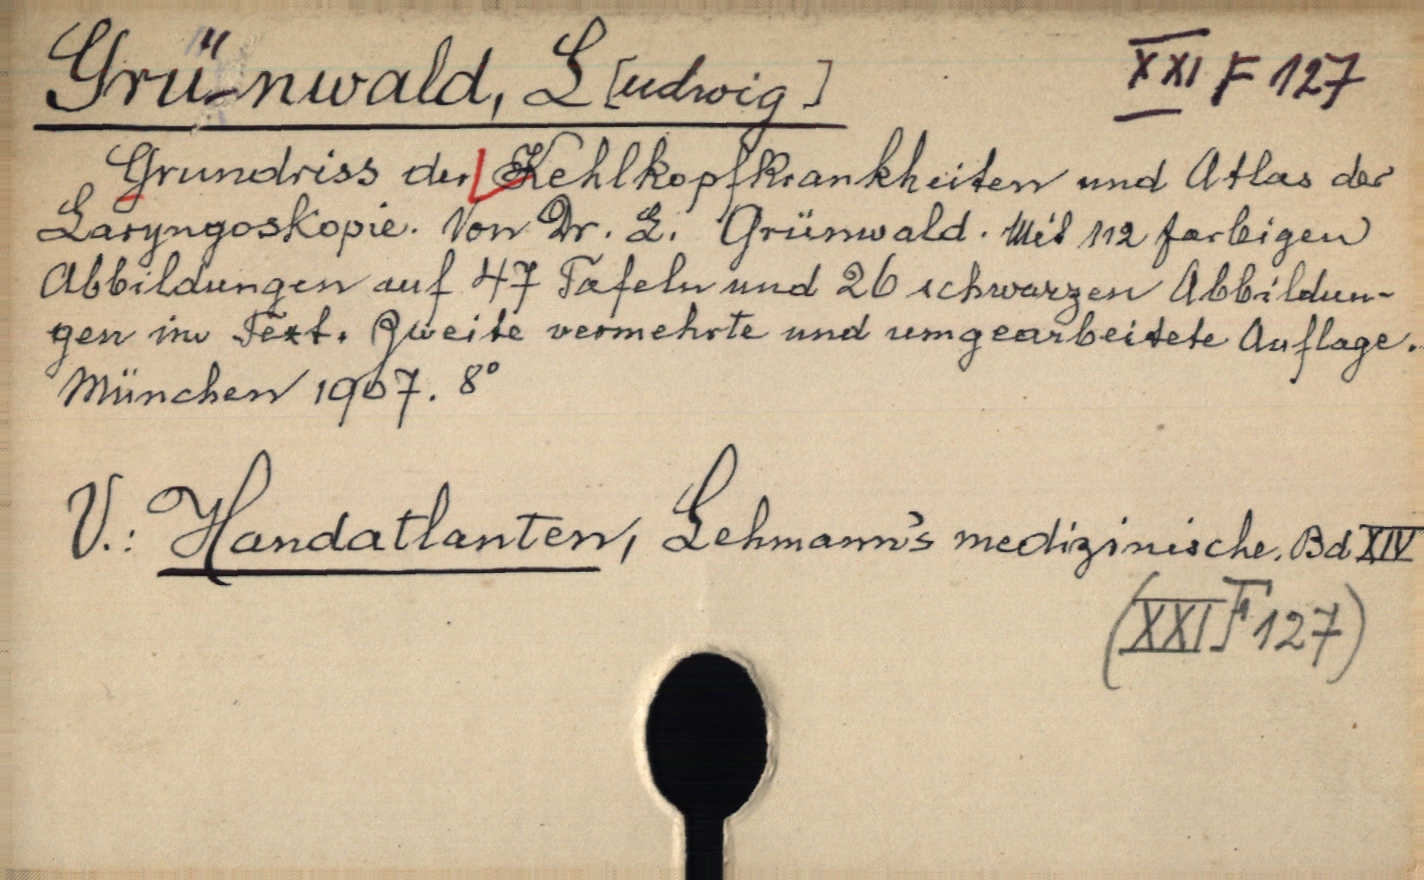 Grünwald, L[udwig]
XXI F 127
Grundriss der Kehlkopfkrankheiten und Atlas der
Laryngoskopie. Von Dr. L. Grünwald. Mit 112 farbigen
Abbildungen auf 47 Tafeln und 26 schwarzen Abbildun-
gen im Text. Zweite vermehrte und umgearbeitete Auflage.
München 1907. 8°
V.: Handatlanten, Lehmann's medizinische. Bd XIV
(XXI F 127)